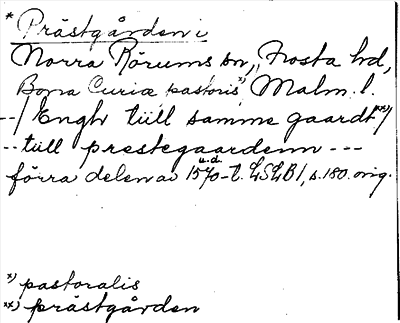 * Prästgården i
Norra Rörums sn, Frosta hd,
Bona Curiæ pastoris*) Malm. l.
--/ Engh tüll samme gaardt**)/
-- tüll prestegaardenn ---
förra delen av 1570-t. u.d. LSLB 1, s. 180. orig.
*) pastoralis
**) prästgården